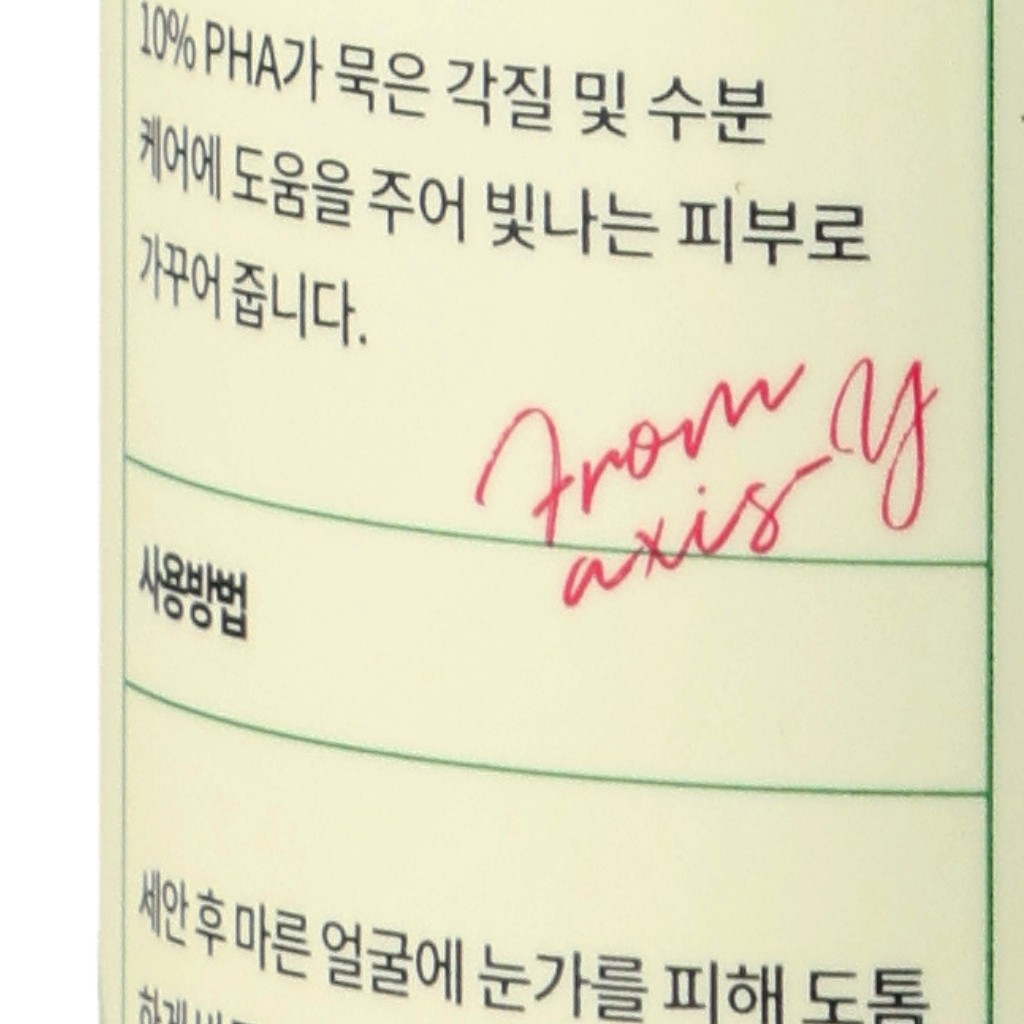 10% PHA가 묵은 각질 및 수분
케어에 도움을 주어 빛나는 피부로
가꾸어 줍니다.
From
axis-y
사용방법
세안 후 마른 얼굴에 눈가를 피해 도톰
하게